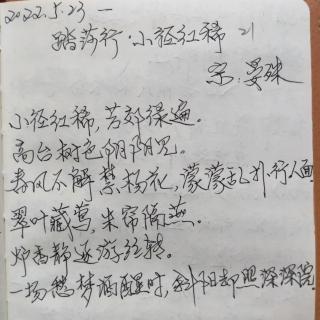 2022.5.23 一
踏莎行·小径红稀 21
宋·晏殊
小径红稀，芳郊绿遍。
高台树色阴阴见。
春风不解禁杨花，濛濛乱扑行人面。
翠叶藏莺，朱帘隔燕。
炉香静逐游丝转。
一场愁梦酒醒时，斜阳却照深深院。